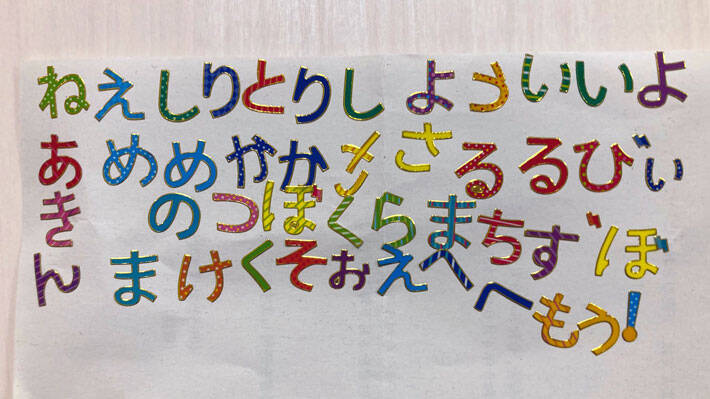 ねえしりとりしよういいよ
あめめやかさるるびぃ
きのつぼくらまちずぼ
んまけくそぉえへへ
もう!